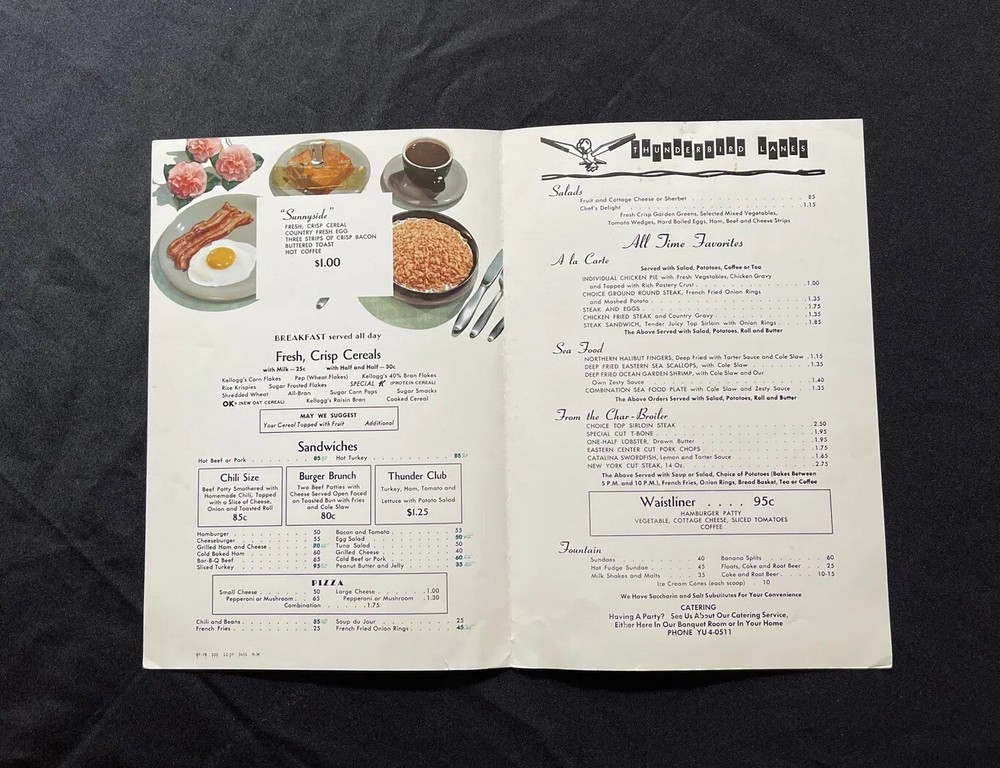 "Sunnyside"
FRESH, CRISP CEREAL
COUNTRY FRESH EGG
THREE STRIPS OF CRISP BACON
BUTTERED TOAST
HOT COFFEE
$1.00
BREAKFAST served all day
Fresh, Crisp Cereals
with Milk — 25c with Half and Half — 30c
Kellogg's Corn Flakes Pep (Wheat Flakes) Kellogg's 40% Bran Flakes
Rice Krispies Sugar Frosted Flakes SPECIAL K (PROTEIN CEREAL)
Shredded Wheat All-Bran Sugar Corn Pops Sugar Smacks
OK's (NEW OAT CEREAL) Kellogg's Raisin Bran Cooked Cereal
MAY WE SUGGEST
Your Cereal Topped with Fruit Additional
Sandwiches
Hot Beef or Pork . . . 85 Hot Turkey . . . 85
Chili Size
Beef Patty Smothered with
Homemade Chili, Topped
with a Slice of Cheese,
Onion and Toasted Roll
85c
Burger Brunch
Two Beef Patties with
Cheese Served Open Faced
on Toasted Bun with Fries
and Cole Slaw
80c
Thunder Club
Turkey, Ham, Tomato and
Lettuce with Potato Salad
$1.25
Hamburger . . . 50 Bacon and Tomato . . . 55
Cheeseburger . . . 55 Egg Salad . . . 50
Grilled Ham and Cheese . . . 70 Tuna Salad . . . 50
Cold Baked Ham . . . 60 Grilled Cheese . . . 40
Bar-B-Q Beef . . . 65 Cold Beef or Pork . . . 60
Sliced Turkey . . . 95 Peanut Butter and Jelly . . . 35
PIZZA
Small Cheese . . . 50 Large Cheese . . . 1.00
Pepperoni or Mushroom . . 65 Pepperoni or Mushroom . . 1.30
Combination . . . 1.75
Chili and Beans . . . 35 Soup du Jour . . . 25
French Fries . . . 25 French Fried Onion Rings . . . 45
THUNDERBIRD LANES
Salads
Fruit and Cottage Cheese or Sherbet . . . 85
Chef's Delight . . . 1.15
Fresh Crisp Garden Greens, Selected Mixed Vegetables,
Tomato Wedges, Hard Boiled Eggs, Ham, Beef and Cheese Strips
All Time Favorites
A la Carte
Served with Salad, Potatoes, Coffee or Tea
INDIVIDUAL CHICKEN PIE with Fresh Vegetables, Chicken Gravy
and Topped with Rich Pastery Crust . . . 1.00
CHOICE GROUND ROUND STEAK, French Fried Onion Rings
and Mashed Potato . . . 1.35
STEAK AND EGGS . . . 1.75
CHICKEN FRIED STEAK and Country Gravy . . . 1.35
STEAK SANDWICH, Tender Juicy Top Sirloin with Onion Rings . . . 1.85
The Above Served with Salad, Potatoes, Roll and Butter
Sea Food
NORTHERN HALIBUT FINGERS, Deep Fried with Tarter Sauce and Cole Slaw . 1.15
DEEP FRIED EASTERN SEA SCALLOPS, with Cole Slaw . . . 1.35
DEEP FRIED OCEAN GARDEN SHRIMP, with Cole Slaw and Our
Own Zesty Sauce . . . 1.40
COMBINATION SEA FOOD PLATE with Cole Slaw and Zesty Sauce . . . 1.35
The Above Orders Served with Salad, Potatoes, Roll and Butter
From the Char-Broiler
CHOICE TOP SIRLOIN STEAK . . . 2.50
SPECIAL CUT T-BONE . . . 1.95
ONE-HALF LOBSTER, Drawn Butter . . . 1.95
EASTERN CENTER CUT PORK CHOPS . . . 1.75
CATALINA SWORDFISH, Lemon and Tarter Sauce . . . 1.65
NEW YORK CUT STEAK, 14 Oz. . . . 2.75
The Above Served with Soup or Salad, Choice of Potatoes (Bakes Between
5 P.M. and 10 P.M.), French Fries, Onion Rings, Bread Basket, Tea or Coffee
Waistliner . . . . 95c
HAMBURGER PATTY
VEGETABLE, COTTAGE CHEESE, SLICED TOMATOES
COFFEE
Fountain
Sundaes . . . 40 Banana Splits . . . 60
Hot Fudge Sundae . . . 45 Floats, Coke and Root Beer . . 25
Milk Shakes and Malts . . . 35 Coke and Root Beer . . . 10-15
Ice Cream Cones (each scoop) . 10
We Have Saccharin and Salt Substitutes For Your Convenience
CATERING
Having A Party? See Us About Our Catering Service,
Either Here In Our Banquet Room or In Your Home
PHONE YU 4-0511